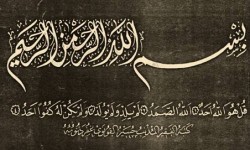 بسم الله الرحمن الرحيم
قل هو الله أحد الله الصمد لم يلد ولم يولد ولم يكن له كفوا أحد